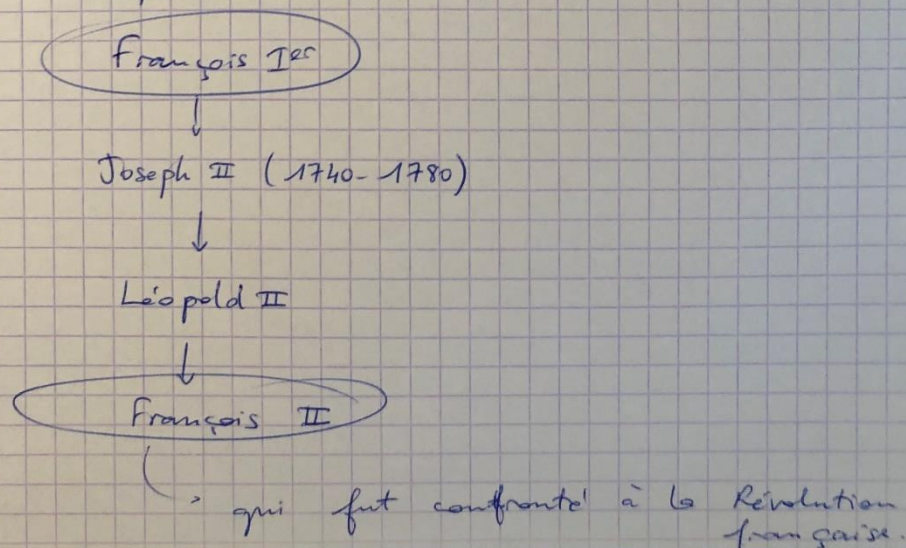 François Ier
Joseph II (1740-1780)
Léopold II
François II
qui fut confronté à la Révolution
française.